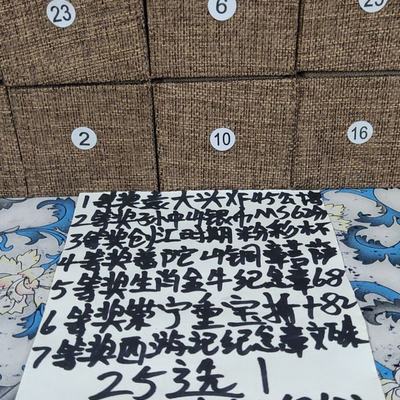 23
6
25
2
10
16
1等奖袁大头XF45公博
2等奖孙中山银币MS62分
3等奖创汇时期粉彩杯
4等奖普陀山铜章菩萨
5等奖生肖金牛纪念章68
6等奖崇宁重宝折十82
7等奖西游记纪念章文殊
25选1